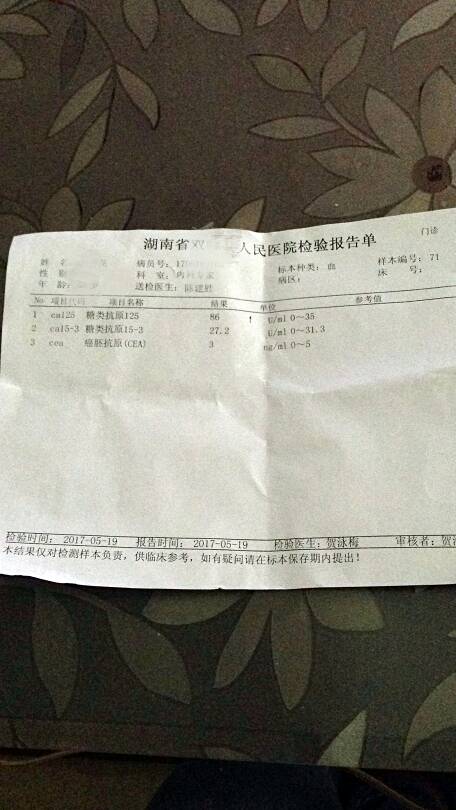 湖南省 人民医院检验报告单 门诊
姓名 病员号： 标本种类：血 样本编号：71
性别 科室：内科专家 病区： 床号：
年龄： 送检医生：陈建胜
No 项目代码 项目名称 结果 单位 参考值
1 ca125 糖类抗原125 86 ↑ U/ml 0~35
2 ca15-3 糖类抗原15-3 27.2 U/ml 0~31.3
3 cea 癌胚抗原(CEA) 3 ng/ml 0~5
检验时间： 2017-05-19 报告时间： 2017-05-19 检验医生：贺泳梅 审核者：贺
本结果仅对检测样本负责，供临床参考，如有疑问请在标本保存期内提出！